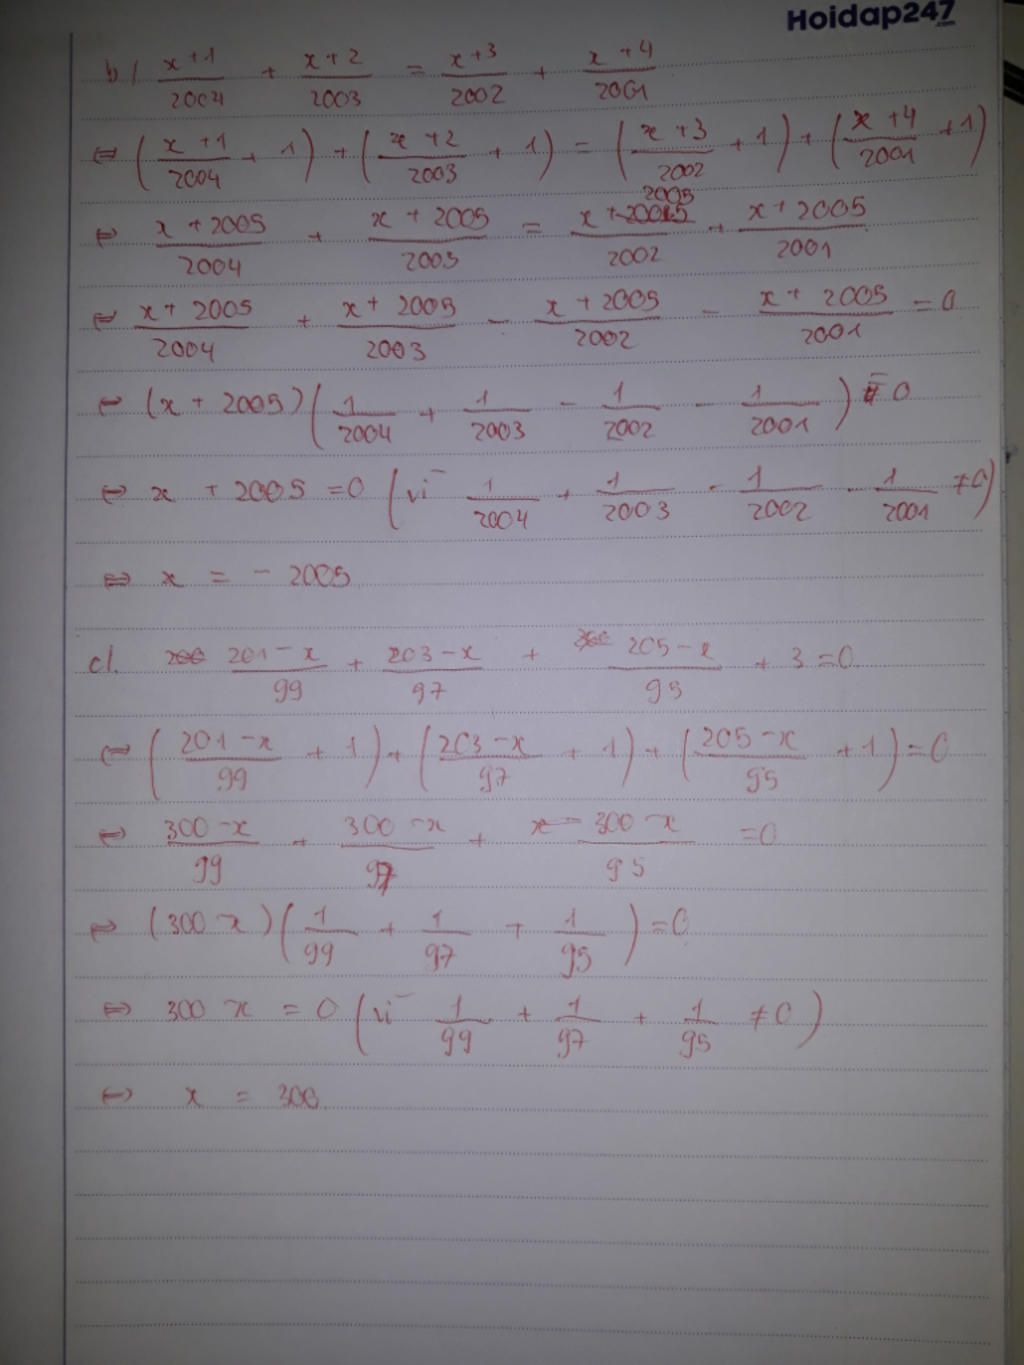 Hoidap247
b/ \frac{x+1}{2004} + \frac{x+2}{2003} = \frac{x+3}{2002} + \frac{x+4}{2001}
⇔ (\frac{x+1}{2004} + 1) + (\frac{x+2}{2003} + 1) = (\frac{x+3}{2002} + 1) + (\frac{x+4}{2001} + 1)
⇔ \frac{x+2005}{2004} + \frac{x+2005}{2003} = \frac{x+2005}{2002} + \frac{x+2005}{2001}
⇔ \frac{x+2005}{2004} + \frac{x+2005}{2003} - \frac{x+2005}{2002} - \frac{x+2005}{2001} = 0
⇔ (x+2005)(\frac{1}{2004} + \frac{1}{2003} - \frac{1}{2002} - \frac{1}{2001}) = 0
⇔ x + 2005 = 0 (vì \frac{1}{2004} + \frac{1}{2003} - \frac{1}{2002} - \frac{1}{2001} ≠ 0)
⇔ x = -2005
c/. \frac{201-x}{99} + \frac{203-x}{97} + \frac{205-x}{95} + 3 = 0
⇔ (\frac{201-x}{99} + 1) + (\frac{203-x}{97} + 1) + (\frac{205-x}{95} + 1) = 0
⇔ \frac{300-x}{99} + \frac{300-x}{97} + \frac{300-x}{95} = 0
⇔ (300-x)(\frac{1}{99} + \frac{1}{97} + \frac{1}{95}) = 0
⇔ 300-x = 0 (vì \frac{1}{99} + \frac{1}{97} + \frac{1}{95} ≠ 0)
⇔ x = 300